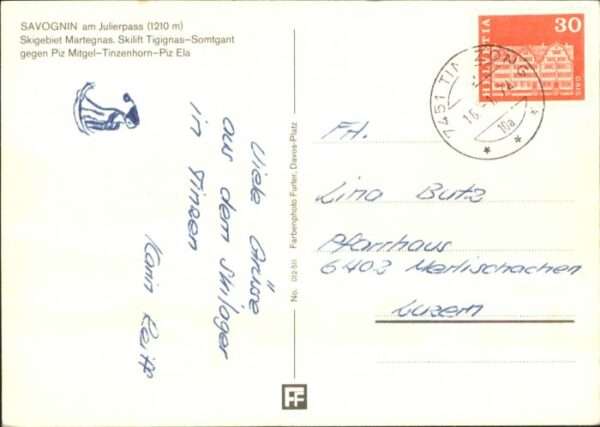 SAVOGNIN am Julierpass (1210 m)
Skigebiet Martegnas. Skilift Tigignas–Somtgant
gegen Piz Mitgel–Tinzenhorn–Piz Ela
Viele Grüsse
aus dem Skilager
in Tinzen
Karin
No. 012-511 Farbenphoto Furter, Davos-Platz
HELVETIA
30
GAIS
7451 TIN
10a
Lina Butz
Pfarrhaus
6402 Merlischachen
Luzern